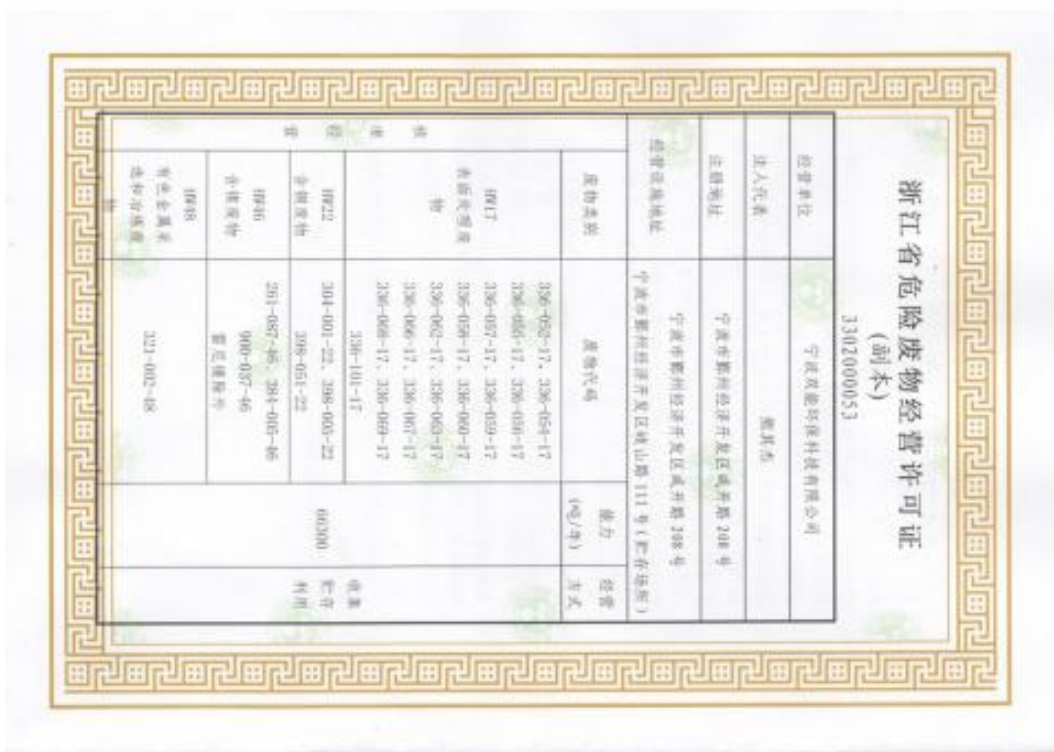 浙江省危险废物经营许可证
(副本)
3302000053
经营单位
宁波双能环保科技有限公司
法人代表
熊其杰
注册地址
宁波市鄞州经济开发区咸升路 208 号
经营设施地址
宁波市鄞州经济开发区咸升路 208 号
宁波市鄞州经济开发区岐山路 111 号(贮存场所)
核准经营
废物类别
废物代码
能力
(吨/年)
经营
方式
HW17
表面处理废
物
336-052-17、336-054-17
336-055-17、336-056-17
336-057-17、336-059-17
336-058-17、336-060-17
336-062-17、336-063-17
336-066-17、336-067-17
336-068-17、336-069-17
336-101-17
HW22
含铜废物
304-001-22、398-005-22
398-051-22
HW46
含镍废物
261-087-46、384-005-46
900-037-46
雷尼镍除外
HW48
有色金属采
选和冶炼废
物
321-002-48
60300
收集
贮存
利用